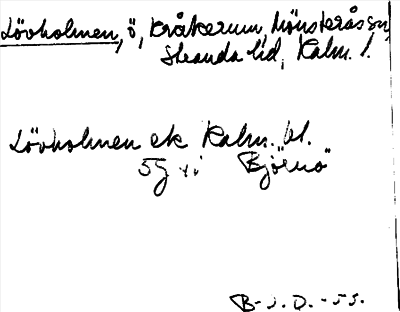 Lövholmen, ö, Kråkerum, Mönsterås sn,
Stranda hd, Kalm. l.
Lövholmen ek Kalm. bl.
5g "Björnö"
B-J. O. -55.